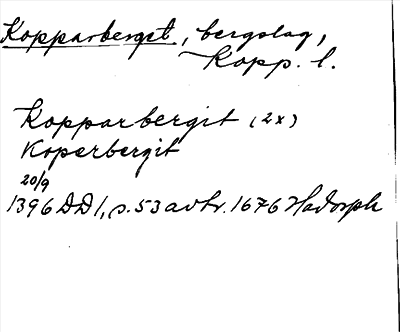 Kopparberget, bergslag,
Kopp. l.
Kopparbergit (2x)
Koperbergit
20/9
1396 DD 1, s. 53 avtr. 1676 Hadorph